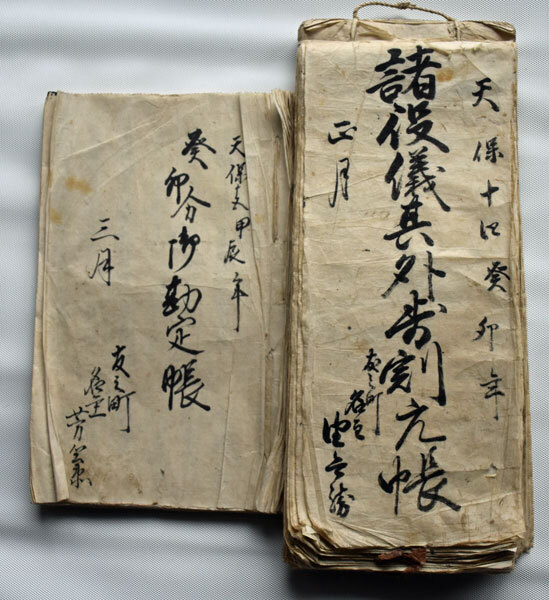 天保十四癸卯年
諸役儀其外歩割元帳
正月
友之町
名主
天保 甲辰年
癸卯分御勘定帳
三月
友之町
名主